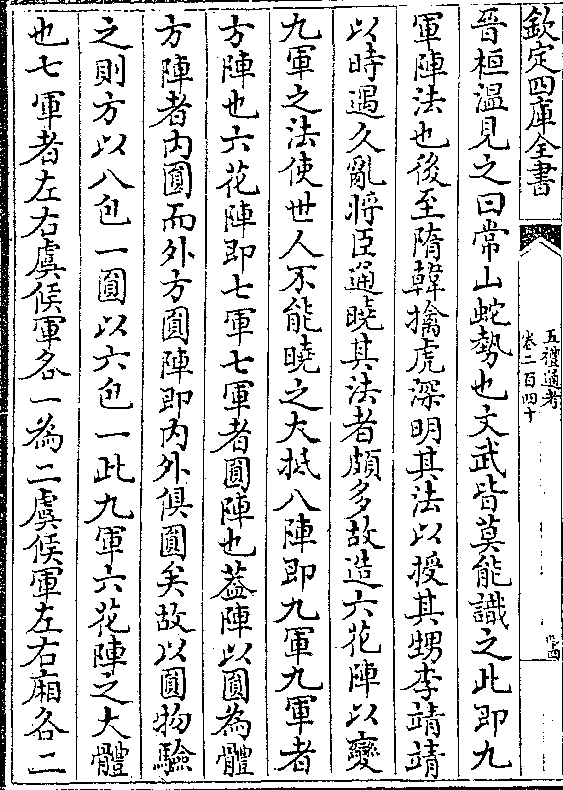 欽定四庫全書
五禮通考
卷二百四十
晉桓溫見之曰常山蛇勢也文武皆莫能識之此即九
軍陣法也後至隋韓擒虎深明其法以授其甥李靖靖
以時遇久亂將臣通曉其法者頗多故造六花陣以變
九軍之法使世人不能曉之大抵八陣即九軍九軍者
方陣也六花陣即七軍七軍者圓陣也葢陣以圓為體
方陣者内圓而外方圓陣即内外俱圓矣故以圓物驗
之則方以八包一圓以六包一此九軍六花陣之大體
也七軍者左右虞候軍各一為二虞候軍左右廂各二